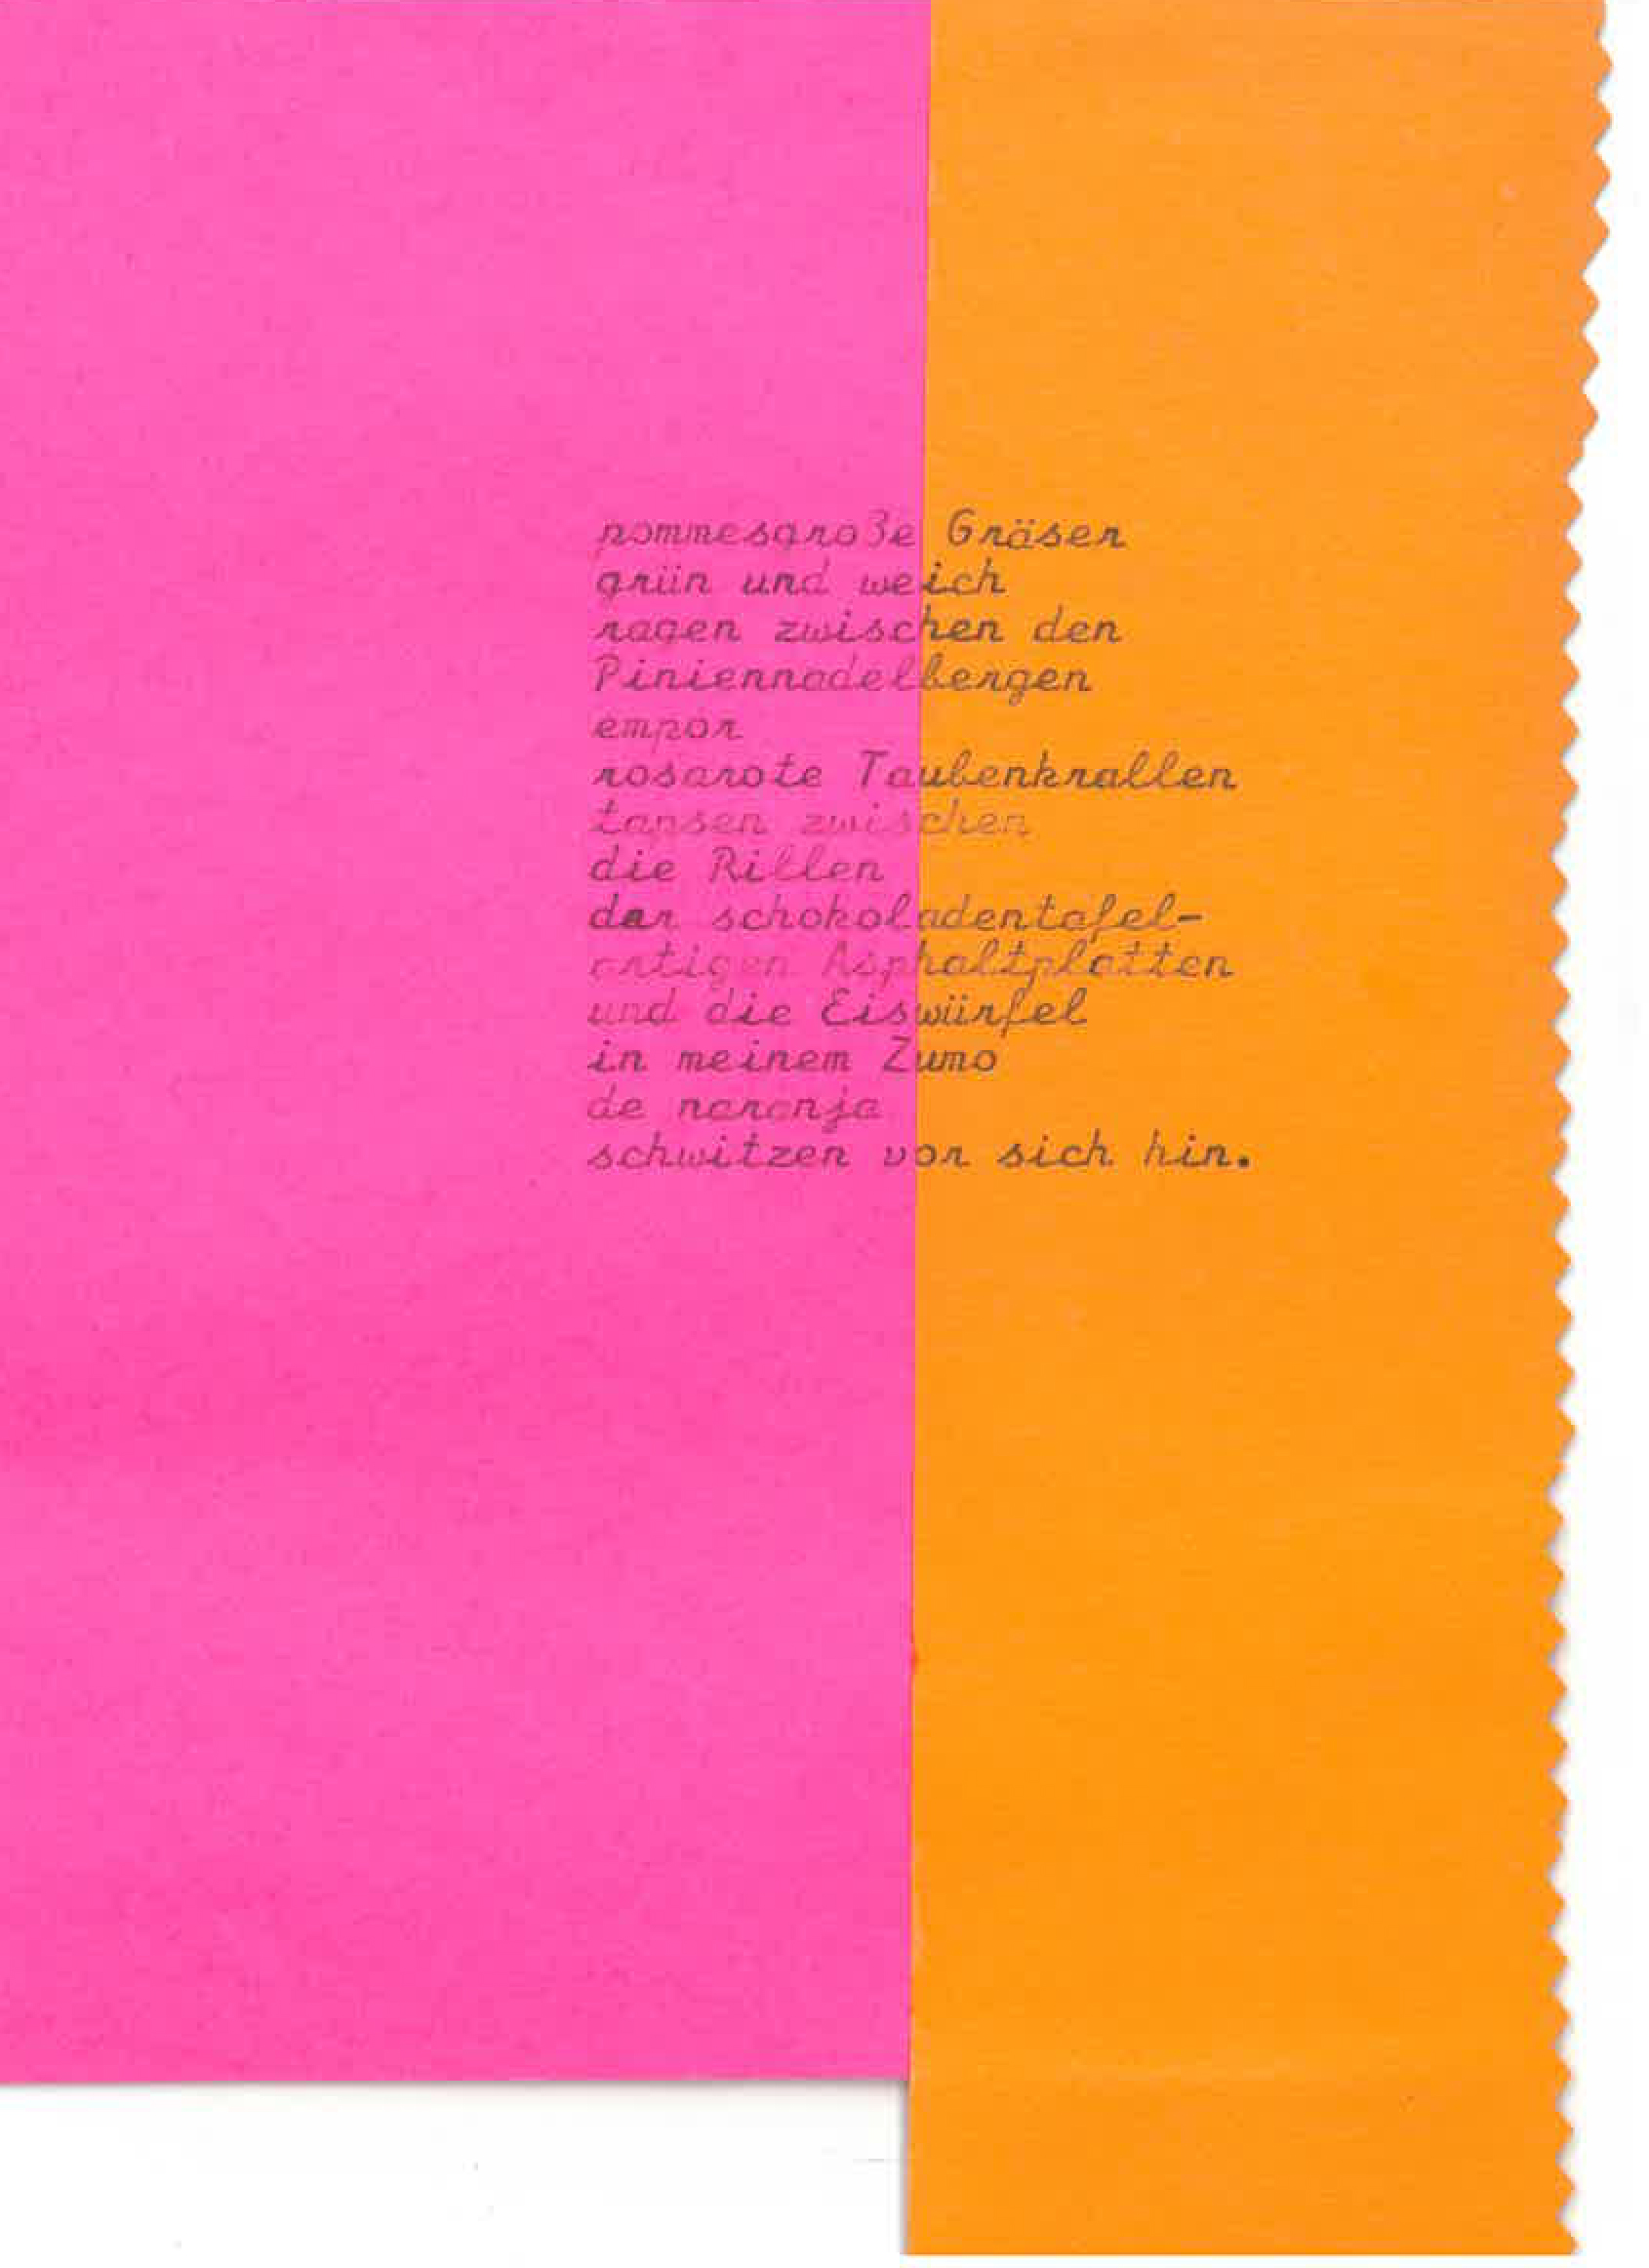 pommesgroße Gräser
grün und weich
ragen zwischen den
Piniennadelbergen
empor
rosarote Taubenkrallen
tapsen zwischen
die Rillen
der schokoladentafel-
artigen Asphaltplatten
und die Eiswürfel
in meinem Zumo
de naranja
schwitzen vor sich hin.